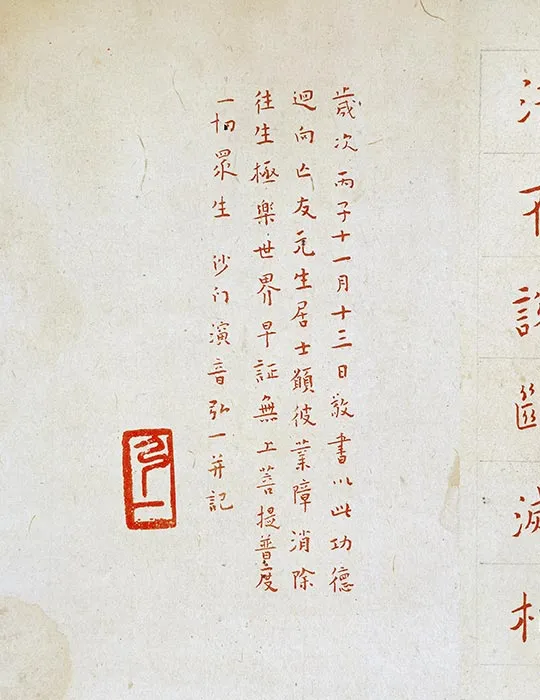 歲次丙子十一月十三日敬書以此功德
迴向亡友生居士願彼業障消除
往生極樂世界早証無上菩提普度
一切眾生 沙门演音弘一并記
弘一